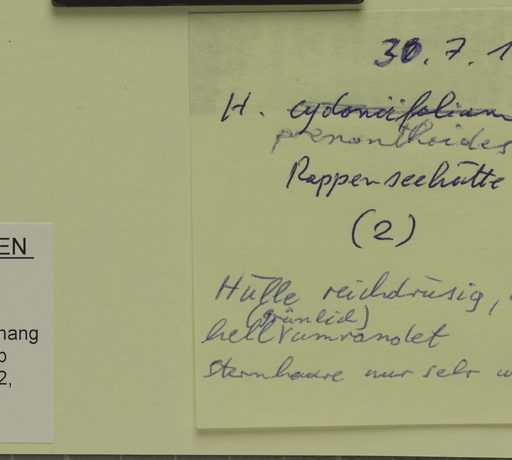 30.7.1
H. cydoniifolium
prenanthoides
Rappenseehütte
(2)
Hülle reichdrüsig,
(grünlich)
hell umrandet
Sternhaare nur sehr
EN
hang
b
2,